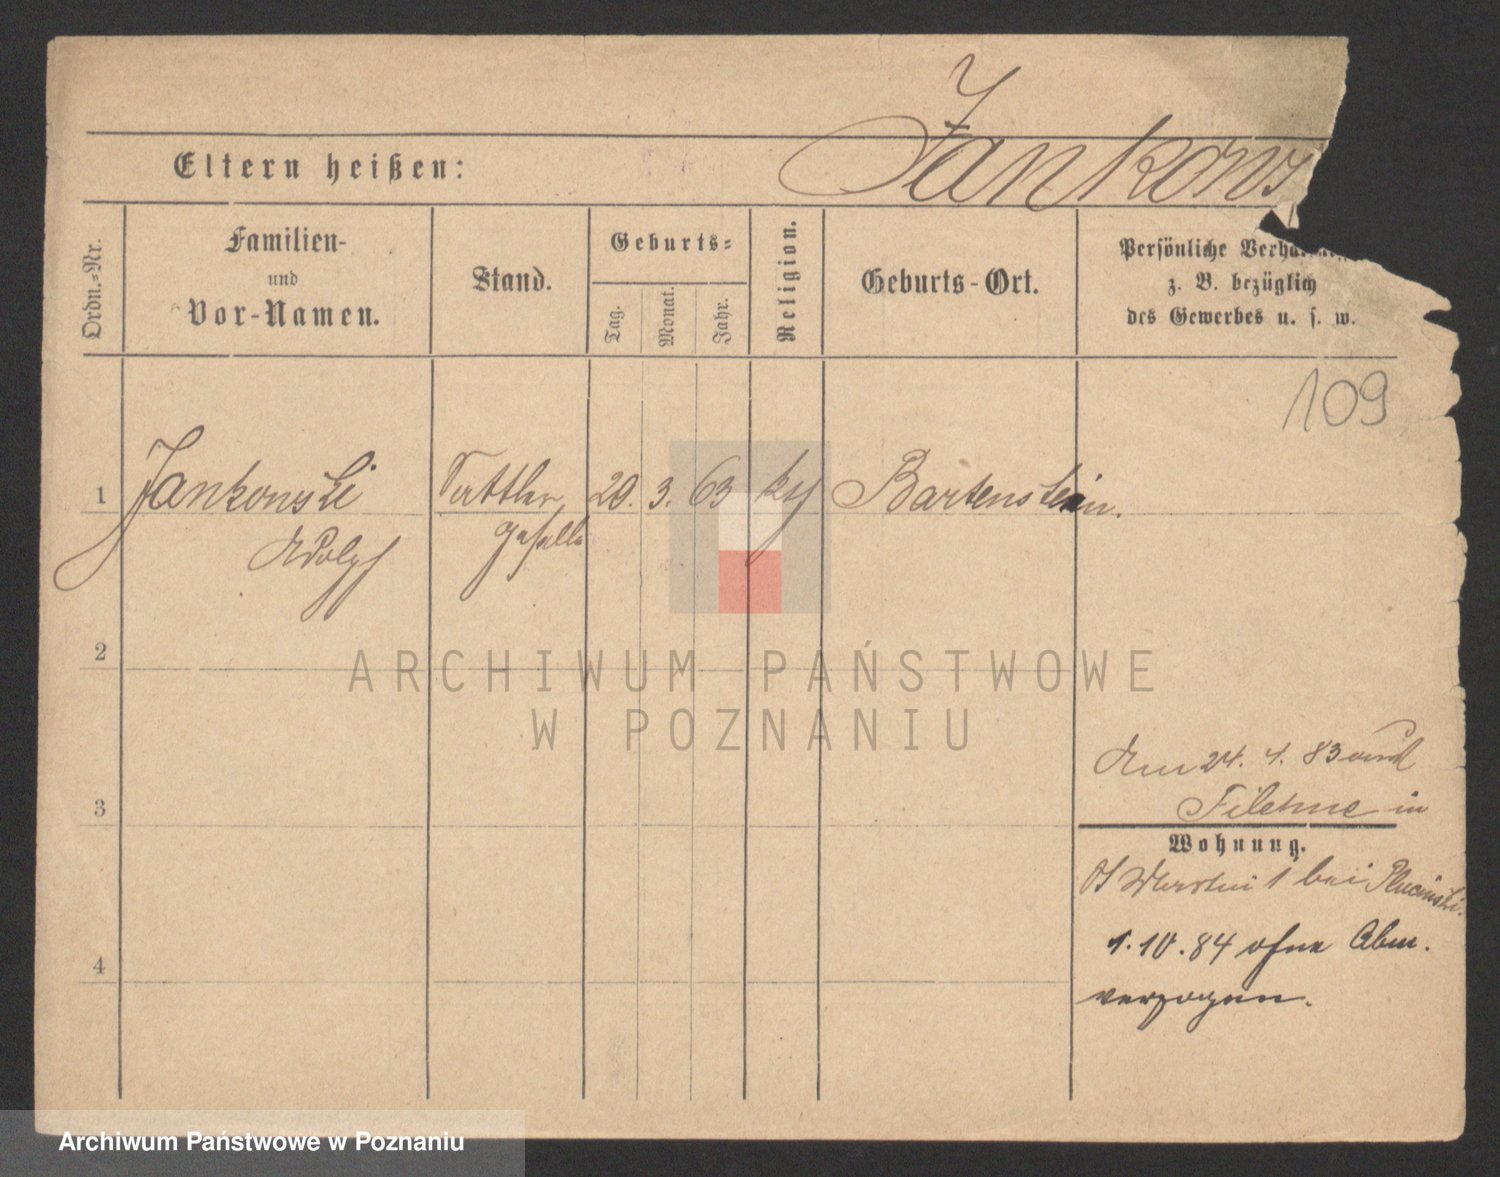 Jankows
Eltern heißen:
Ordn.-Nr.
Familien-
und
Vor-Namen.
Stand.
Geburts-
Tag.
Monat.
Jahr.
Religion.
Geburts-Ort.
Persönliche
z. B. bezüglich
des Gewerbes u. s. w.
109
1 Jankowski Sattler 20. 3. 63 Bartenstein.
Adolf geselle
2
ARCHIWUM PAŃSTWOWE
W POZNANIU
Am 24. 83
3 Filehne in
Wohnung.
1 bei
1.10.84 ohne Abm.
4
verzogen.
Archiwum Państwowe w Poznaniu